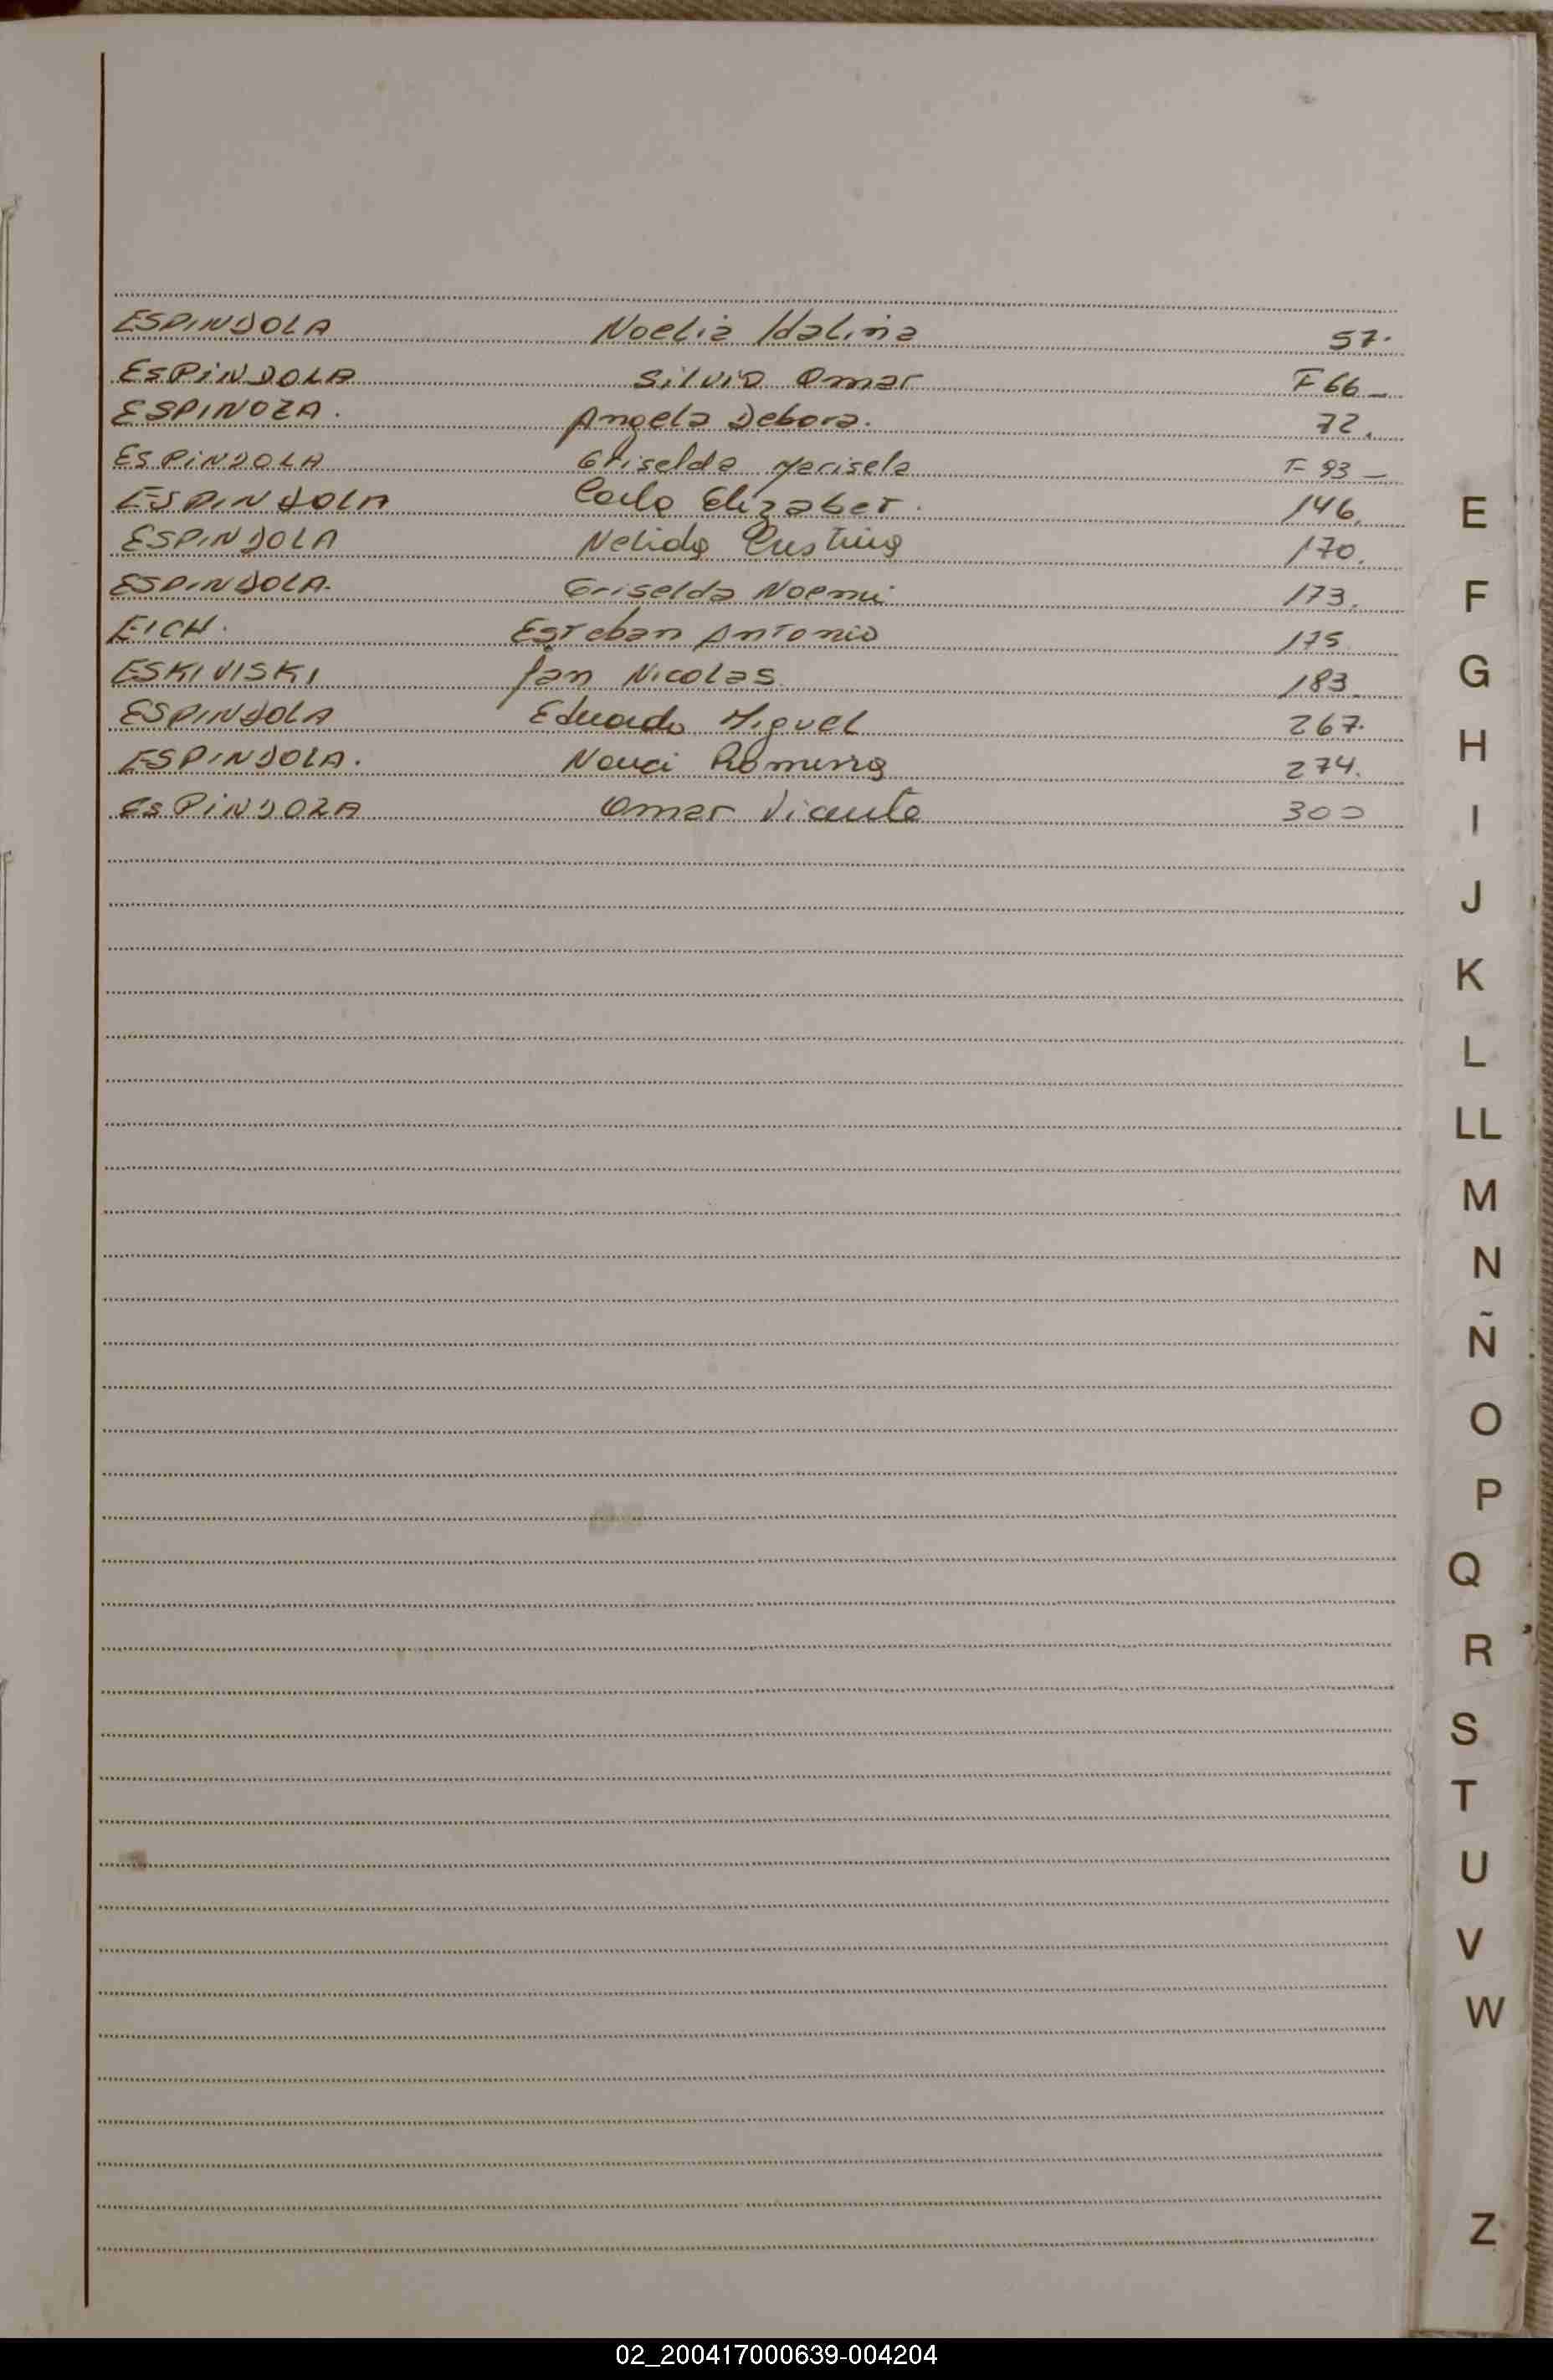 ESPINDOLA Noelia Idalina 57.
ESPINDOLA Silvio Omar F 66-
ESPINOZA. Angela Debora. 72.
ESPINDOLA Griselda Marisela F 93-
ESPINDOLA Carla Elizabet. 146.
ESPINDOLA Nelida Cristina 170.
ESPINDOLA. Griselda Noemi 173.
EICH. Esteban Antonio 175.
ESKIVISKI Jan Nicolas. 183.
ESPINDOLA Eduardo Miguel 267.
ESPINDOLA. Romina 274.
ESPINDOLA Omar Vicente 300
E
F
G
H
I
J
K
L
LL
M
N
Ñ
O
P
Q
R
S
T
U
V
W
Z
02_200417000639-004204